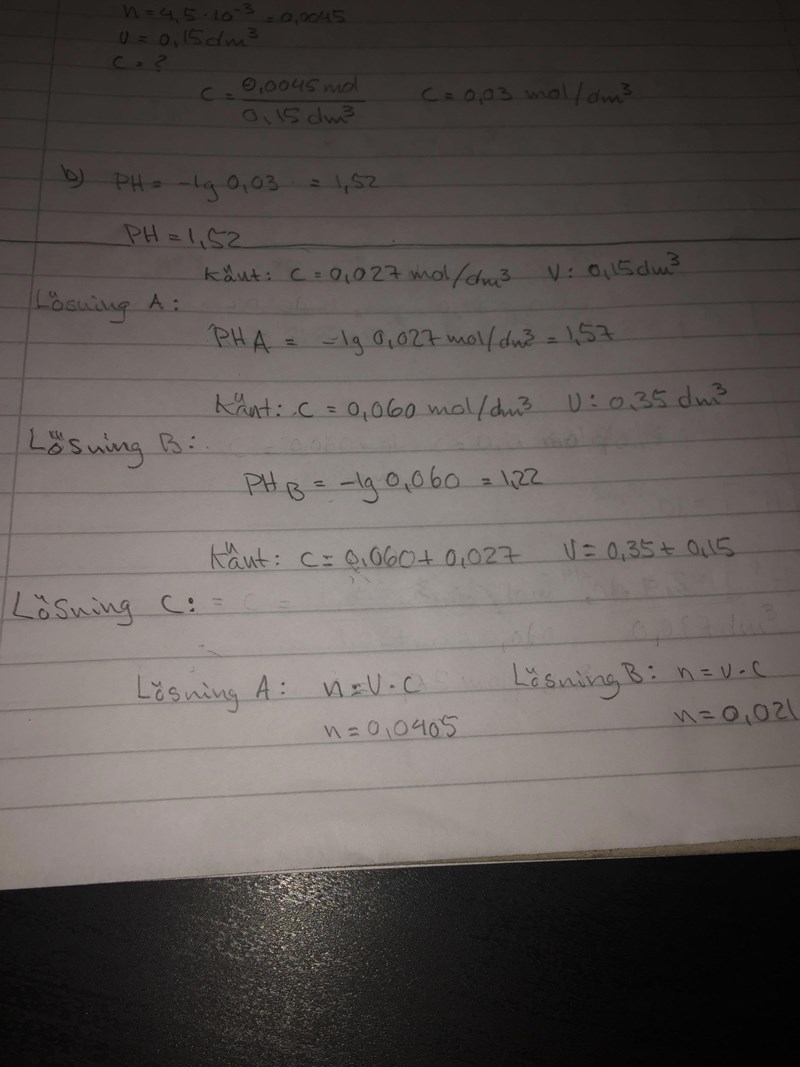 n = 4,5 · 10⁻³ = 0,0045
V = 0,15 dm³
C = ?
C = 0,0045 mol / 0,15 dm³ C = 0,03 mol/dm³
b) PH = -lg 0,03 = 1,52
PH = 1,52
Känt: C = 0,027 mol/dm³ V: 0,15 dm³
Lösning A:
PH A = -lg 0,027 mol/dm³ = 1,57
Känt: C = 0,060 mol/dm³ V: 0,35 dm³
Lösning B:
PH B = -lg 0,060 = 1,22
Känt: C = 0,060 + 0,027 V = 0,35 + 0,15
Lösning C:
Lösning A: n = V · C Lösning B: n = V · C
n = 0,0405 n = 0,021